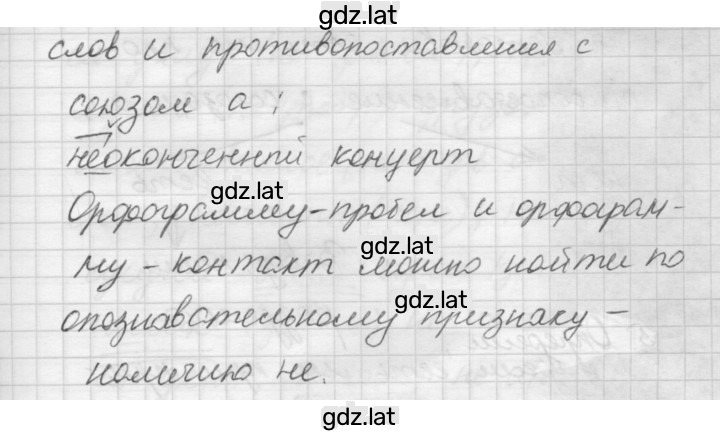 gdz.lat
слов и противопоставления с
союзом а;
неоконченный концерт
gdz.lat
Орфограмму-пробел и орфограм-
gdz.lat
му - контакт можно найти по
gdz.lat
опознавательному признаку -
наличию не.
gdz.lat